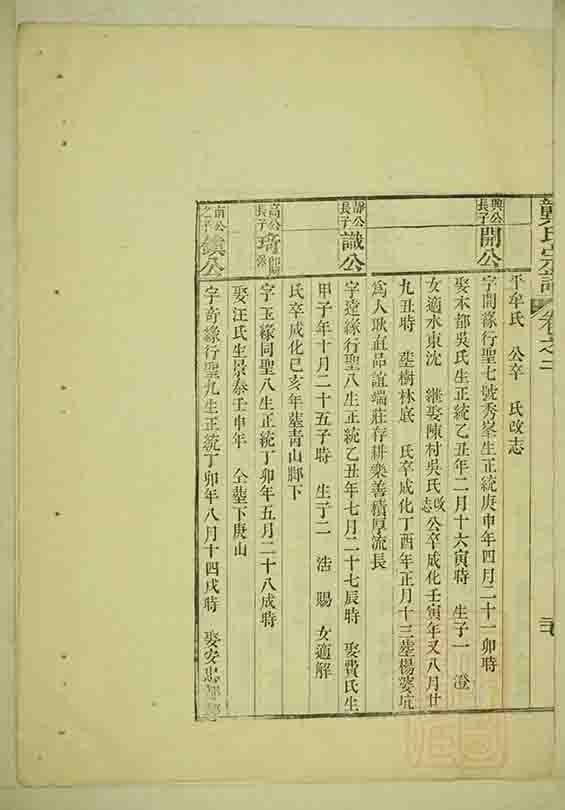 氏宗譜 卷之二
平牟氏 公卒 氏改志
興公長子 開公
字開緣行聖七號秀峯生正統庚申年四月二十一卯時
娶本都吳氏生正統乙丑年二月十六寅時 生子一 澄
女適水東沈 繼娶陳村吳氏改志公卒成化壬寅年又八月廿
九丑時 塟樹林底 氏卒成化丁酉年正月十三塟楊婆坑
為人耿直品誼端莊存耕樂善積厚流長
長子 識公
字達緣行聖八生正統乙丑年七月二十七辰時 娶費氏生
甲子年十月二十五子時 生子二 浩 賜 女適解
氏卒成化己亥年塟青山脚下
高公長子 琦公
字玉緣同聖八生正統丁卯年五月二十八戌時
娶汪氏生景泰壬申年 仝塟下庚山
南公之子 鎮公
字奇緣行聖九生正統丁卯年八月十四戌時 娶安忠